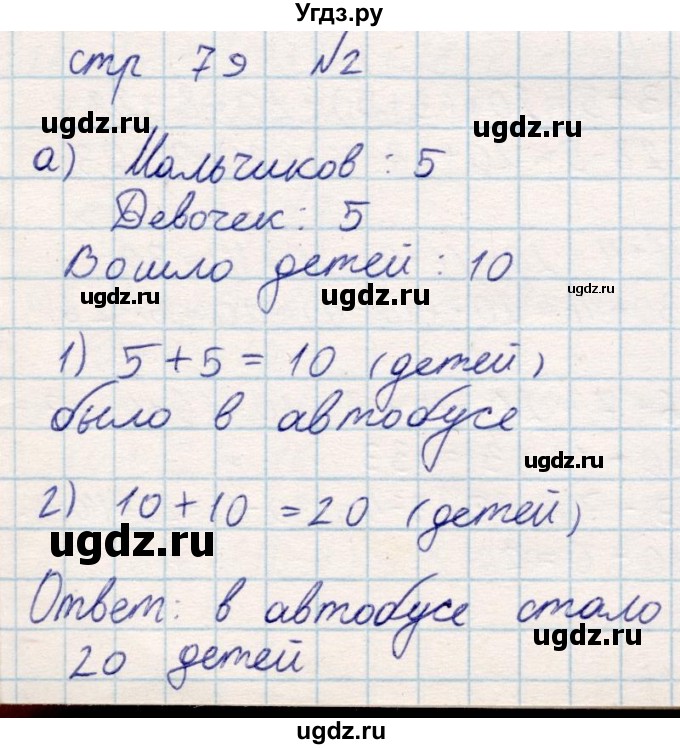 Угдз.ру
стр 79 №2
ugdz.ru ugdz.ru
а) Мальчиков: 5
Девочек: 5
Вошло детей: 10
ugdz.ru ugdz.ru ugdz.ru
1) 5+5=10 (детей)
было в автобусе
ugdz.ru
2) 10+10=20 (детей)
ugdz.ru
Ответ: в автобусе стало
ugdz.ru
20 детей
ugdz.ru